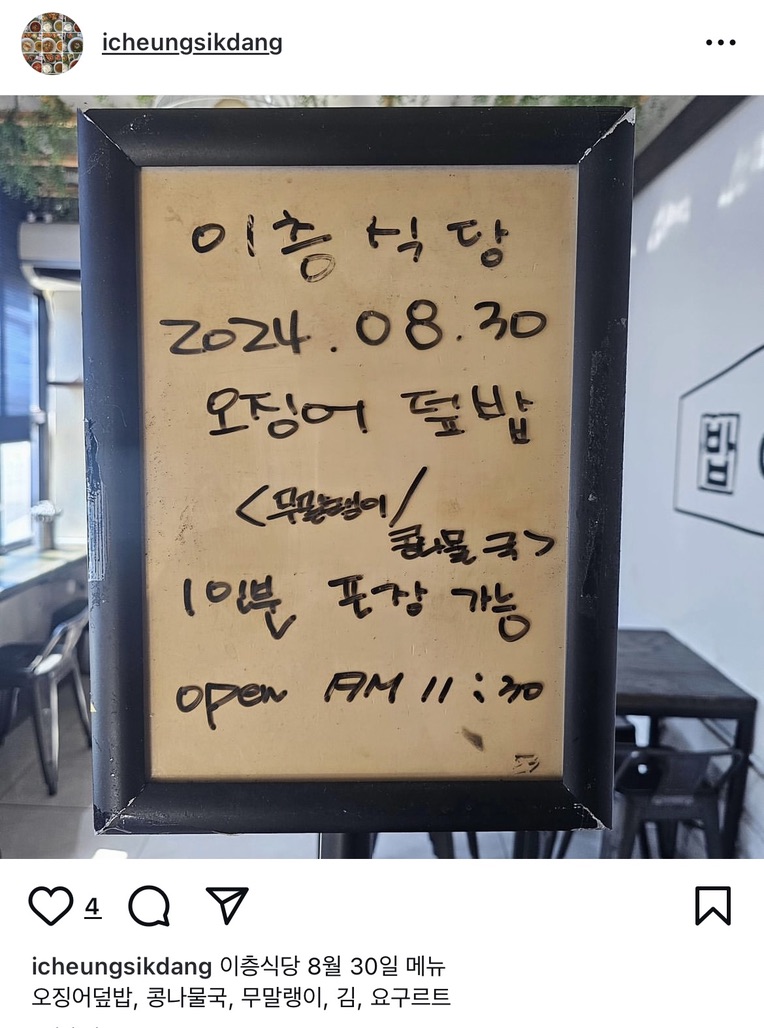 icheungsikdang
이층 식당
2024.08.30
오징어 덮밥
<무말랭이/
콩나물 국>
1인분 포장 가능
open AM 11:30
4
icheungsikdang 이층식당 8월 30일 메뉴
오징어덮밥, 콩나물국, 무말랭이, 김, 요구르트